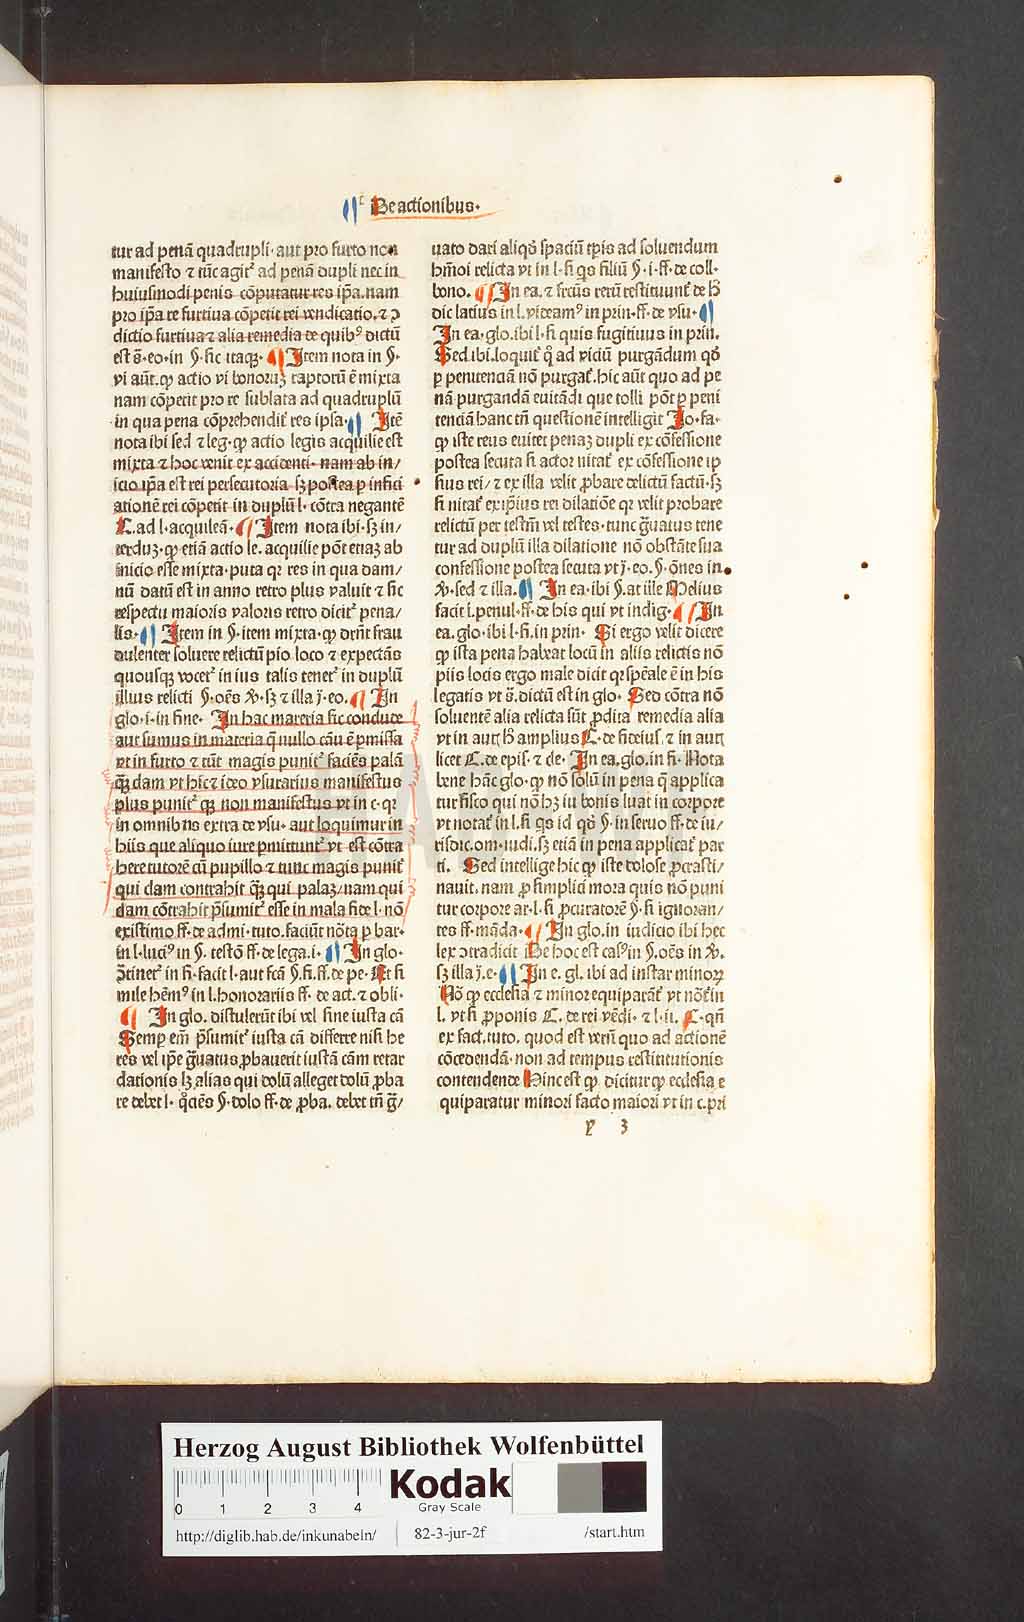 De actionibus.
tur ad penā quadrupli. aut pro furto non
manifesto ⁊ tūc agit᷑ ad penā dupli nec in
huiusmodi penis cōputatur res ip̄a. nam
pro ip̄a re furtiua cōpetit rei vendicatio. ⁊ ↄ
dictio furtiua ⁊ alia remedia de quibꝰ dictū
est ē. eo. in §. sic itaqꝫ. Item nota in §.
vi aūt. ꝙ actio vi bonoruꝫ raptorū ē mixta
nam cōpetit pro re sublata ad quadruplū
in qua pena cōprehendit᷑ res ipsa. Itē
nota ibi sed ⁊ leg. ꝙ actio legis acquilie est
mixta ⁊ hoc venit ex accidenti. nam ab in/
icio ip̄a est rei persecutoria sꝫ postea ꝑ infici
ationē rei cōpetit in duplū l. cōtra negantē
C. ad l. acquileā. Item nota ibi. sꝫ in/
terduꝫ. ꝙ etiā actio le. acquilie pōt etiaꝫ ab
inicio esse mixta. puta qꝛ res in qua dam/
nū datū est in anno retro plus valuit ⁊ sic
respectu maioris valoris retro dicit᷑ pena/
lis. Item in §. item mixta. ꝙ dr̄nt frau
dulenter soluere relictū pio loco ⁊ expectās
quousqꝫ vocet᷑ in ius talis tenet᷑ in duplū
illius relicti §. oēs ꝟ. sꝫ ⁊ illa j. eo. In
glo. i. in fine. In hac materia sic conclude
aut sumus in materia q̄ nullo cāu ē ꝑmissa
vt in furto ⁊ tūt magis punit᷑ faciēs palā
qꝫ dam vt hic ⁊ ideo vsurarius manifestus
plus punit᷑ qꝫ non manifestus vt in c. qꝛ
in omnibus extra de vsu. aut loquimur in
hiis que aliquo iure ꝑmittunt᷑ vt est cōtra
here tutorē cū pupillo ⁊ tunc magis punit᷑
qui dam contrahit qꝫ qui palaꝫ/ nam qui
dam cōtrahit p̄sumit᷑ esse in mala fide l. nō
existimo ff. de admi. tuto. faciūt nōta ꝑ bar.
in l. luciꝰ in §. testō ff. de lega. i. In glo.
ↄtinet᷑ in fi. facit l. aut fcā §. fi. ff. de pe. Et si
mile hēmꝰ in l. honorariis ff. de act. ⁊ obli.
In glo. distulerūt ibi vel sine iusta cā
Semꝑ em̄ p̄sumit᷑ iusta cā differre nisi he
res vel ip̄e gͣuatus ꝓbauerit iustā cām retar
dationis lꝫ alias qui dolū alleget dolū ꝓba
re debet l. qͦciēs §. dolo ff. de ꝓba. debet tn̄ gͣ/
uato dari aliqͦ spaciū tp̄is ad soluendum
hm̄oi relicta vt in l. si qͥs filiū §. i. ff. de coll.
bono. In ea. ⁊ frcūs rerū restituunt᷑ de ħ
dic latius in l. videamꝰ in prin. ff. de vsu.
In ea. glo. ibi l. si quis fugitiuus in prin.
Sed. ibi. loquit᷑ qͦ ad viciū purgādum qd̄
ꝑ penitenciā nō purgat᷑. hic aūt quo ad pe
nā purgandā euitādi que tolli pōt ꝑ peni
tenciā hanc tn̄ questionē intelligit Jo. fa.
ꝙ iste reus euitet penaꝫ dupli ex cōfessione
postea secuta si actor nitat᷑ ex cōfessione ip
sius rei/ ⁊ ex illa velit ꝓbare delictū factū. sꝫ
si nitat᷑ exip̄ius rei dilatiōe qꝛ velit probare
relictū per testm̄ vel testes. tunc gͣuatus tene
tur ad duplū illa dilatione nō obstāte sua
confessione postea secuta vt j. eo. §. ōnes in
ꝟ. sed ⁊ illa. In ea. ibi §. at ille Melius
facit l. penul. ff. de his qui vt indig. In
ea. glo. ibi l. fi. in prin. Si ergo velit dicere
ꝙ ista pena habeat locū in aliis relictis nō
piis locis ergo male dicit qꝛ sp̄eāle ē in his
legatis vt s̄. dictū est in glo. Sed cōtra nō
soluentē alia relicta sūt ꝓdita remedia alia
vt in autī ħ amplius C. de fideius. ⁊ in autī
licet C. de epis. ⁊ cle. In ea. glo. in fi. Nota
bene hāc glo. ꝙ nō solū in pena q̄ applica
tur fisco qui nō hꝫ iu bonis luat in corpore
vt notat᷑ in l. si qͥs id qͦ §. in seruo ff. de iu/
risdic. om. iudi. sꝫ etiā in pena applicat᷑ par
ti. Sed intellige hic ꝙ iste dolose ꝓcrasti/
nauit. nam ꝓ simplici mora quis nō puni
tur corpore ar. l. si ꝓcuratorē §. si ignoran/
tes ff. māda. In glo. in iudicio ibi hec
lex ↄtradicit De hoc est casꝰ in §. oēs in ꝟ.
sꝫ illa j. e. In e. gl. ibi ad instar minorꝝ
Nō ꝙ ecclesia ⁊ minor equiparāt᷑ vt nōt᷑ in
l. vt si ꝓponis C. de rei vēdi. ⁊ l. ii. C. qn̄
ex fact. tuto. quod est verū quo ad actionē
cōcedendā. non ad tempus restitutionis
contendente Hinc est ꝙ dicitur ꝙ ecclesia e
quiparatur minori facto maiori vt in c. pri
y 3
Herzog August Bibliothek Wolfenbüttel
0 1 2 3 4
Kodak
Gray Scale
http://diglib.hab.de/inkunabeln/ 82-3-jur-2f /start.htm
HAB